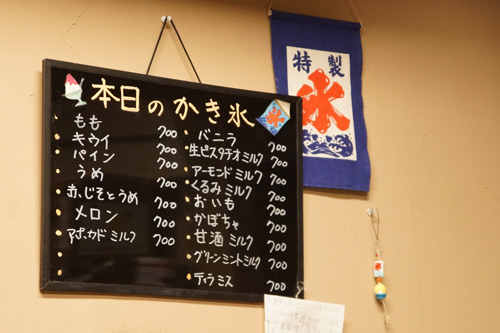 本日のかき氷
もも 700
キウイ 700
パイン 700
うめ 700
赤じそとうめ 700
メロン 700
アボカドミルク 700
バニラ 700
生ピスタチオミルク 700
アーモンドミルク 700
くるみミルク 700
おいも 700
かぼちゃ 700
甘酒ミルク 700
グリーンミントミルク 700
ティラミス 700
氷
特製
氷